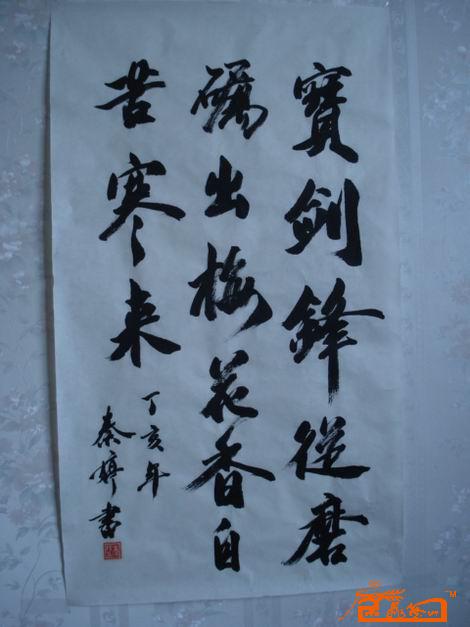 寳劍鋒從磨
礪出梅花香自
苦寒来
丁亥年
秦婷書
TM